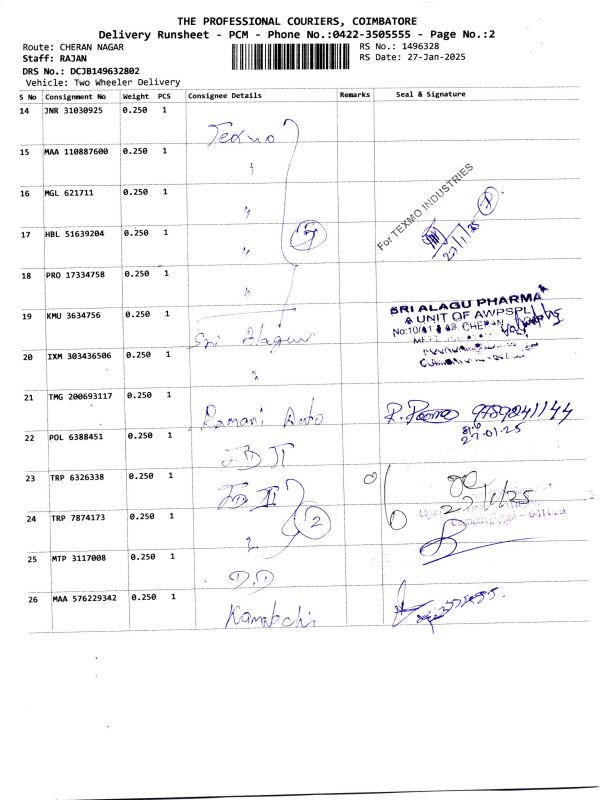 THE PROFESSIONAL COURIERS, COIMBATORE
Delivery Runsheet - PCM - Phone No.:0422-3505555 - Page No.:2
Route: CHERAN NAGAR
RS No.: 1496328
Staff: RAJAN
RS Date: 27-Jan-2025
DRS No.: DCJB149632802
Vehicle: Two Wheeler Delivery
S No Consignment No Weight PCS Consignee Details Remarks Seal & Signature
14 JNR 31030925 0.250 1
Texmo
15 MAA 110887600 0.250 1
"
16 MGL 621711 0.250 1
"
For TEXMO INDUSTRIES
17 HBL 51639204 0.250 1
"
27/1/25
18 PRO 17334758 0.250 1
"
19 KMU 3634756 0.250 1
Sri Alagu
SRI ALAGU PHARMA
A UNIT OF AWPSPL
20 IXM 303436506 0.250 1
"
21 TMG 200693117 0.250 1
Ramani Auto
9789241144
27.01.25
22 POL 6388451 0.250 1
23 TRP 6326338 0.250 1
27/1/25
24 TRP 7874173 0.250 1
2
25 MTP 3117008 0.250 1
D.D
26 MAA 576229342 0.250 1